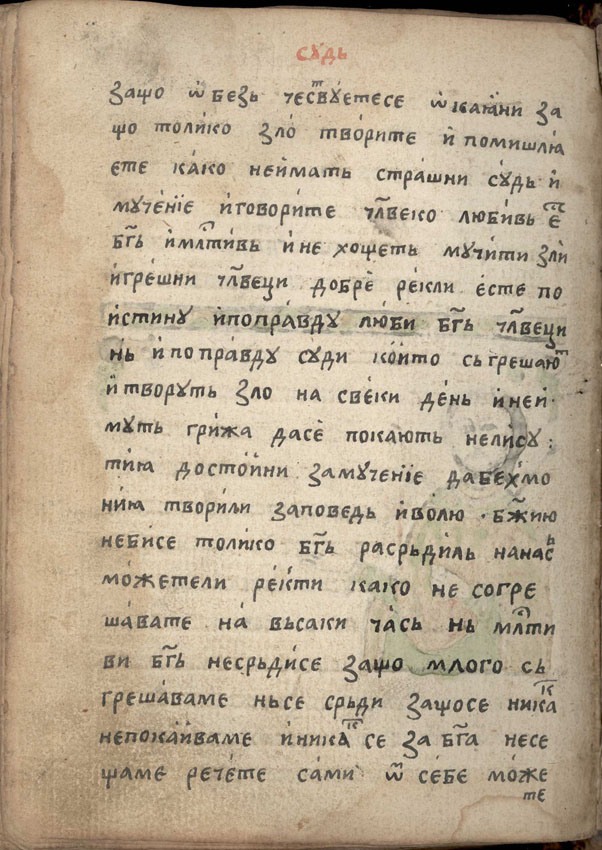 сꙋдь
защо ѡ҆ безь чесⷮвꙋетесе ѡ҆каꙗ҆ни за
що толи́ко зло̀ тво́рите и҆ помишлꙗ́
ете ка́ко неи́мать стра́шни сꙋ́дь и҆
мꙋче́нїе и҆говори́те чл҃веко люби́вь еⷭ҇
бг҃ь и҆мл҃тивь и҆не хо́щеть мꙋчи́ти зли̏
и҆гре́шни чл҃веци добрѐ ре́кли е́сте по
и́стинꙋ и҆попра́вдꙋ лю́би бг҃ь чл҃веци
нь̀ и҆ попра́вдꙋ сꙋди кои́то сьгрешаюⷮ
и҆ творꙋть зло на све́ки де́нь и҆неи҆
мꙋть гри́жа дасѐ пока́ють нели́сꙋ :
ти́ꙗ досто́йни замꙋче́нїе дабех́мо
ни́ꙗ твори́ли за́поведь и҆волю · бж҃ию
неби́се толи́ко бг҃ь расрьди́ль нанась
мо́жетели ре́кⷭ҇ти како не согре
ша́вате на̀ вьса́ки ча́сь нь мл҃ти
ви бг҃ь несрьди́се защо мло́го сь
греша́ваме ньсе срьди защосе никаⷦ
непока́йваме и҆никаⷦ се за бг҃а несе
щаме рече́те са́ми ѿ се́бе мо́же
те